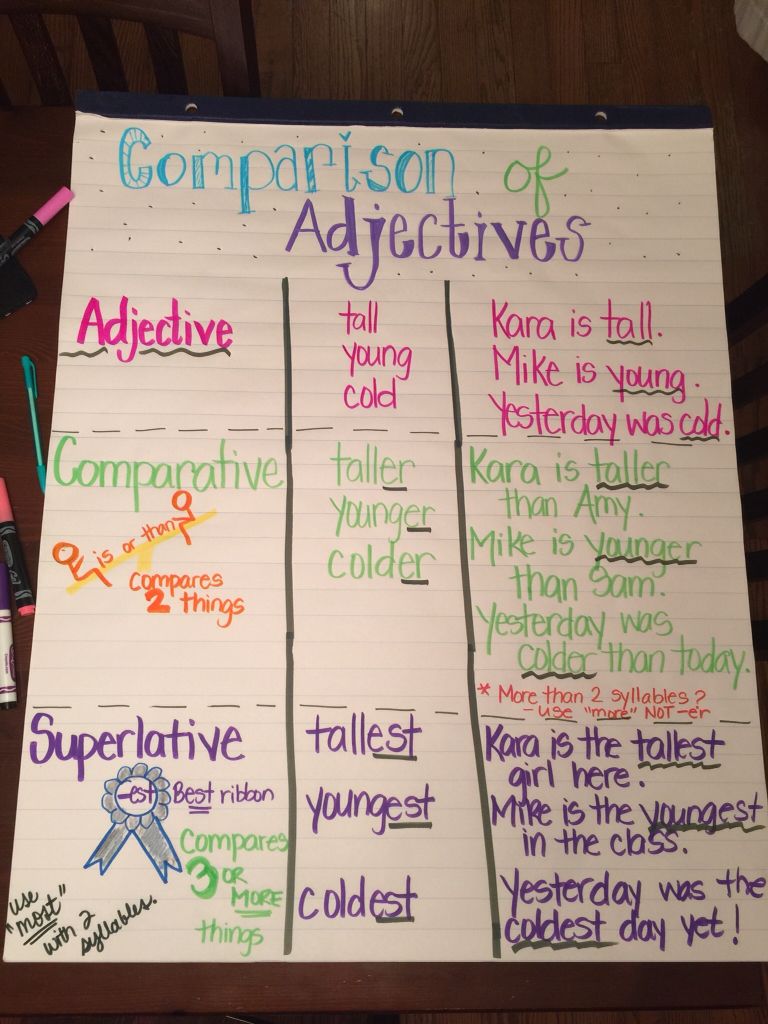 Comparison of
Adjectives
Adjective
tall
young
cold
Kara is tall.
Mike is young.
Yesterday was cold.
Comparative
is or than
compares
2 things
taller
younger
colder
Kara is taller
than Amy.
Mike is younger
than Sam.
Yesterday was
colder than today.
* More than 2 syllables?
- use "more" NOT -er
Superlative
-est
Best ribbon
Compares
3 OR
MORE
things
"use
most"
with 2
syllables.
tallest
youngest
coldest
Kara is the tallest
girl here.
Mike is the youngest
in the class.
Yesterday was the
coldest day yet!